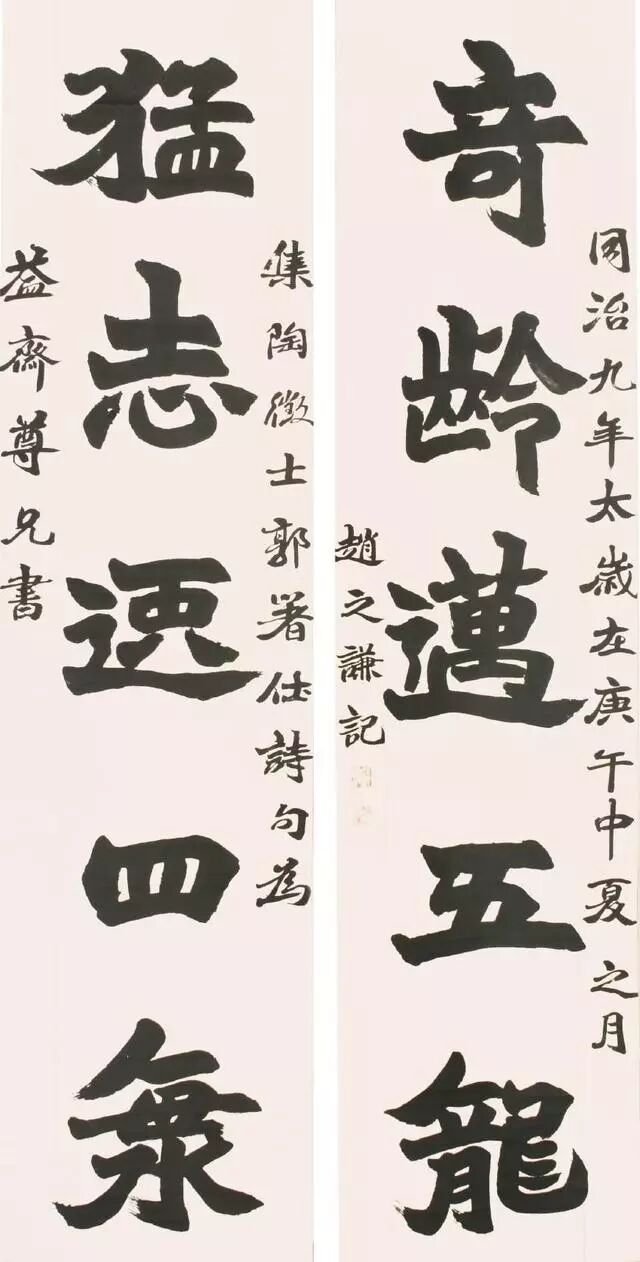 同治九年太歲在庚午中夏之月
竒齡邁五龍
趙之謙記
集陶徵士郭著作詩句為
猛志逸四海
益齋尊兄書